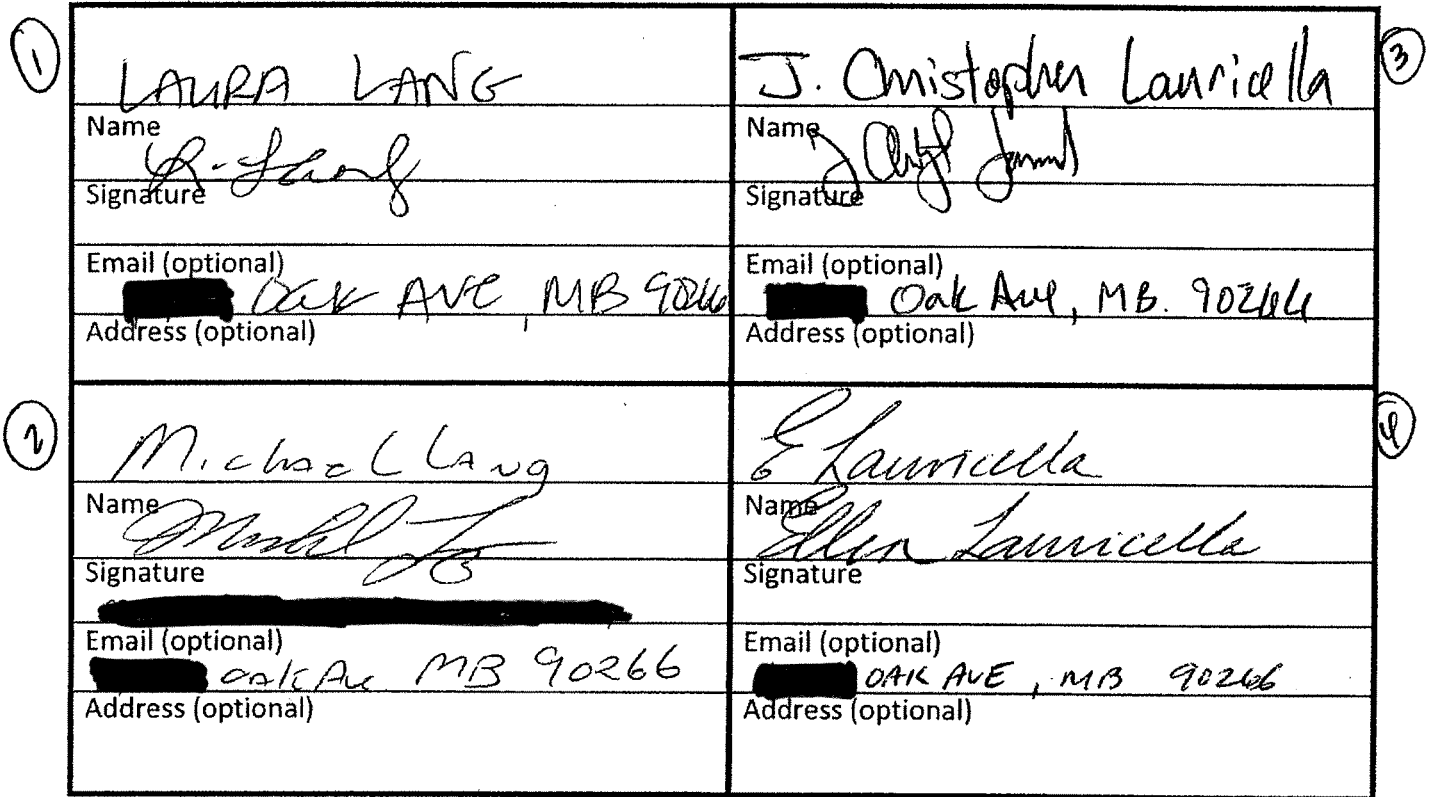 1
LAURA LANG
Name
Signature
Email (optional)
Oak AVE, MB 90266
Address (optional)
2
Michael Lang
Name
Signature
Email (optional)
oak Ave MB 90266
Address (optional)
3
J. Christopher Lauricella
Name
Signature
Email (optional)
Oak Ave, MB. 90266
Address (optional)
4
E Lauricella
Name
Ellen Lauricella
Signature
Email (optional)
OAK AVE, MB 90266
Address (optional)